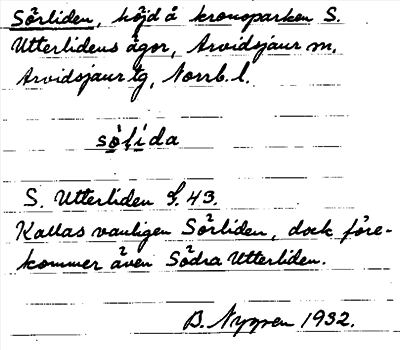 Sörliden, höjd å kronoparken S.
Utterlidens ägor, Arvidsjaur m.
Arvidsjaur tg, Norrb. l.
sö̀lida
S. Utterliden S. 43.
Kallas vanligen Sörliden, dock före-
kommer även Södra Utterliden.
B. Nygren 1932.